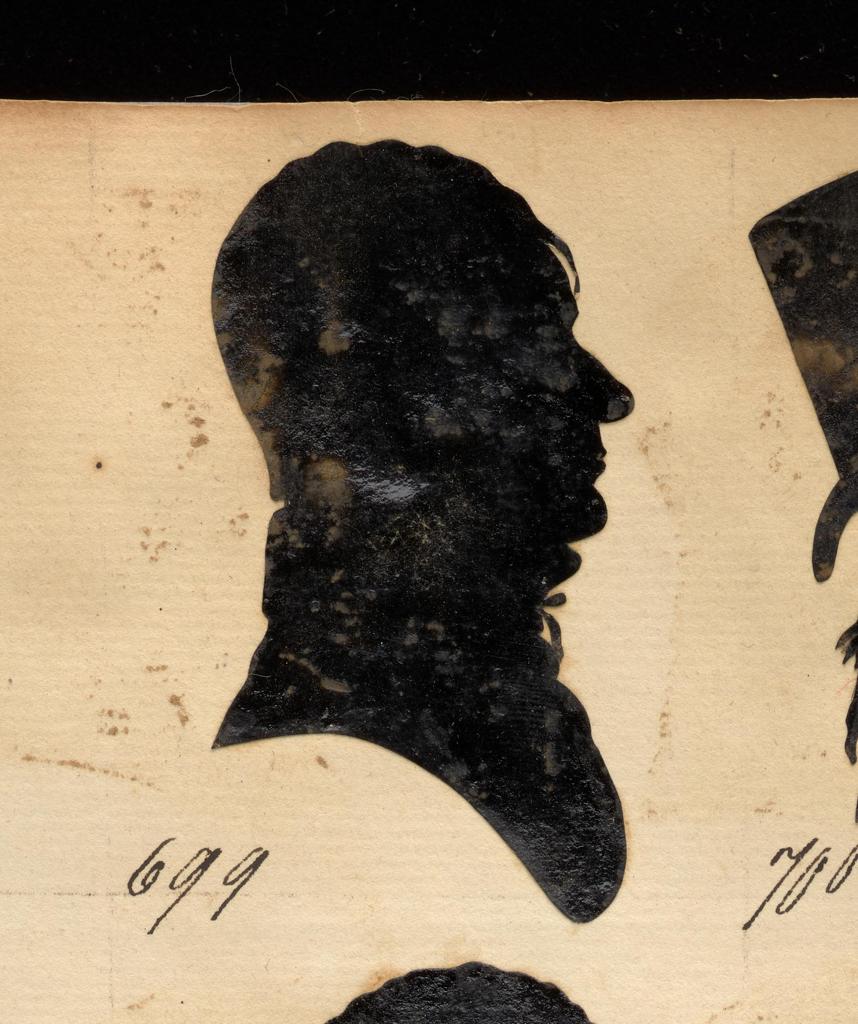 699
700